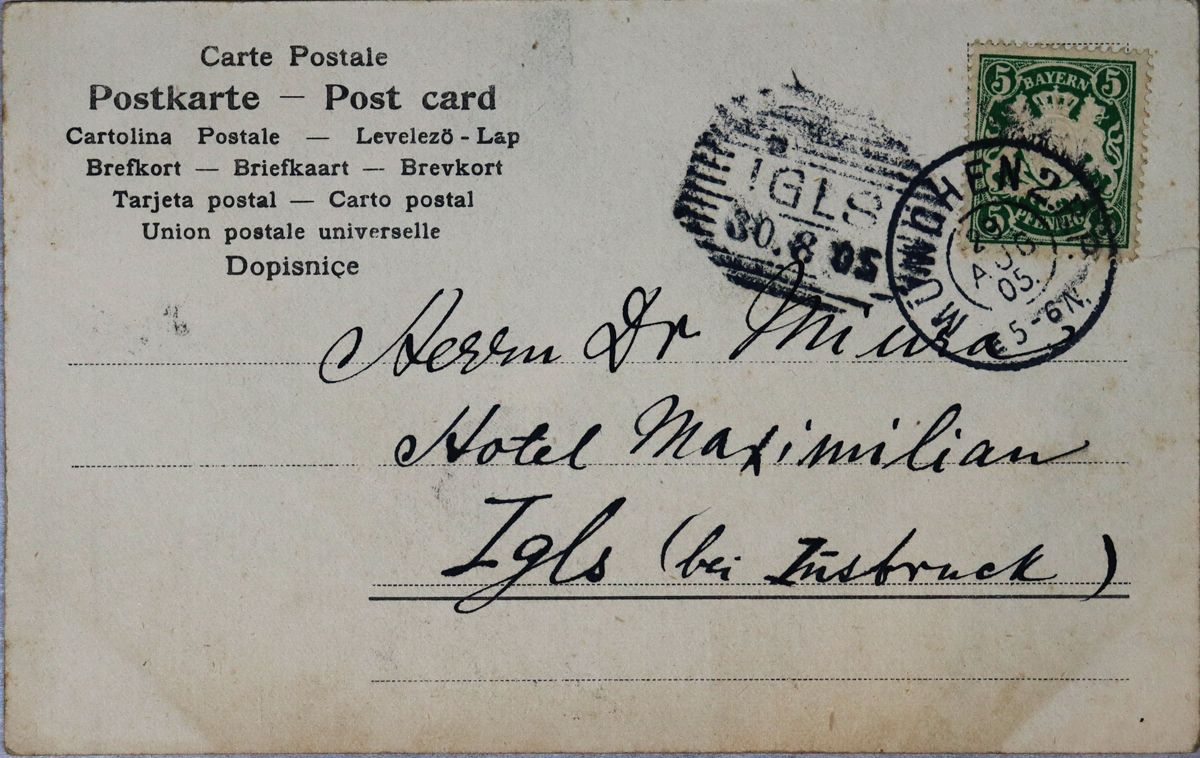 Carte Postale
Postkarte — Post card
Cartolina Postale — Levelezö-Lap
Brefkort — Briefkaart — Brevkort
Tarjeta postal — Carto postal
Union postale universelle
Dopisniçe
5 BAYERN 5
5 PFENNIG
IGLS
30.8 05
MÜNCHEN
AUG
05.
5-6N.
Herrn Dr Miura
Hotel Maximilian
Igls (bei Insbruck)